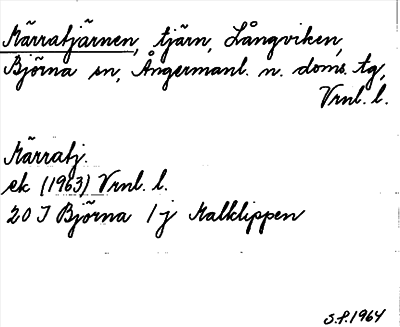 Märratjärnen, tjärn, Långviken,
Björna sn, Ångermanl. n. doms. tg,
Vrnl. l.
Märratj.
ek (1963) Vrnl. l.
20 I Björna 1 j Malklippen
S.P. 1964